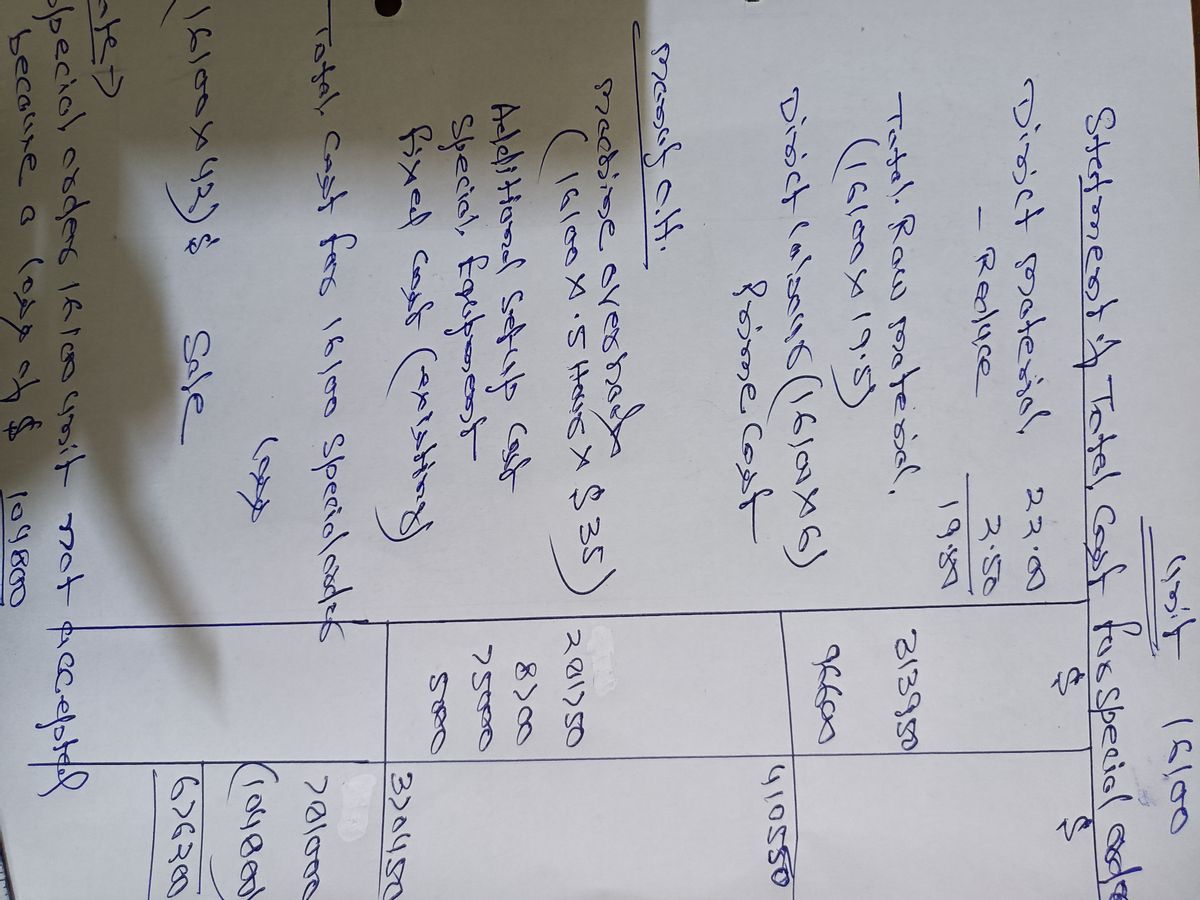 Unit 16100
Statement of Total Cost for Special order
$ $
Direct material 22.00
- Reduce 2.50
19.50
Total Raw material. 313950
(16100 x 19.5)
Direct labour (16100 x 6) 96600
Prime Cost 410550
O.H.
machine overhead
(16100 x .5 Hour x $ 35) 281750
Additional Setup Cost 8700
Special Equipment 75000
fixed Cost (existing) 5000
370450
Total Cost for 16100 Special order 781000
loss (104800)
(16100 x 42) $ Sale 676200
Special order 16100 unit not accepted
because a loss of $ 104800